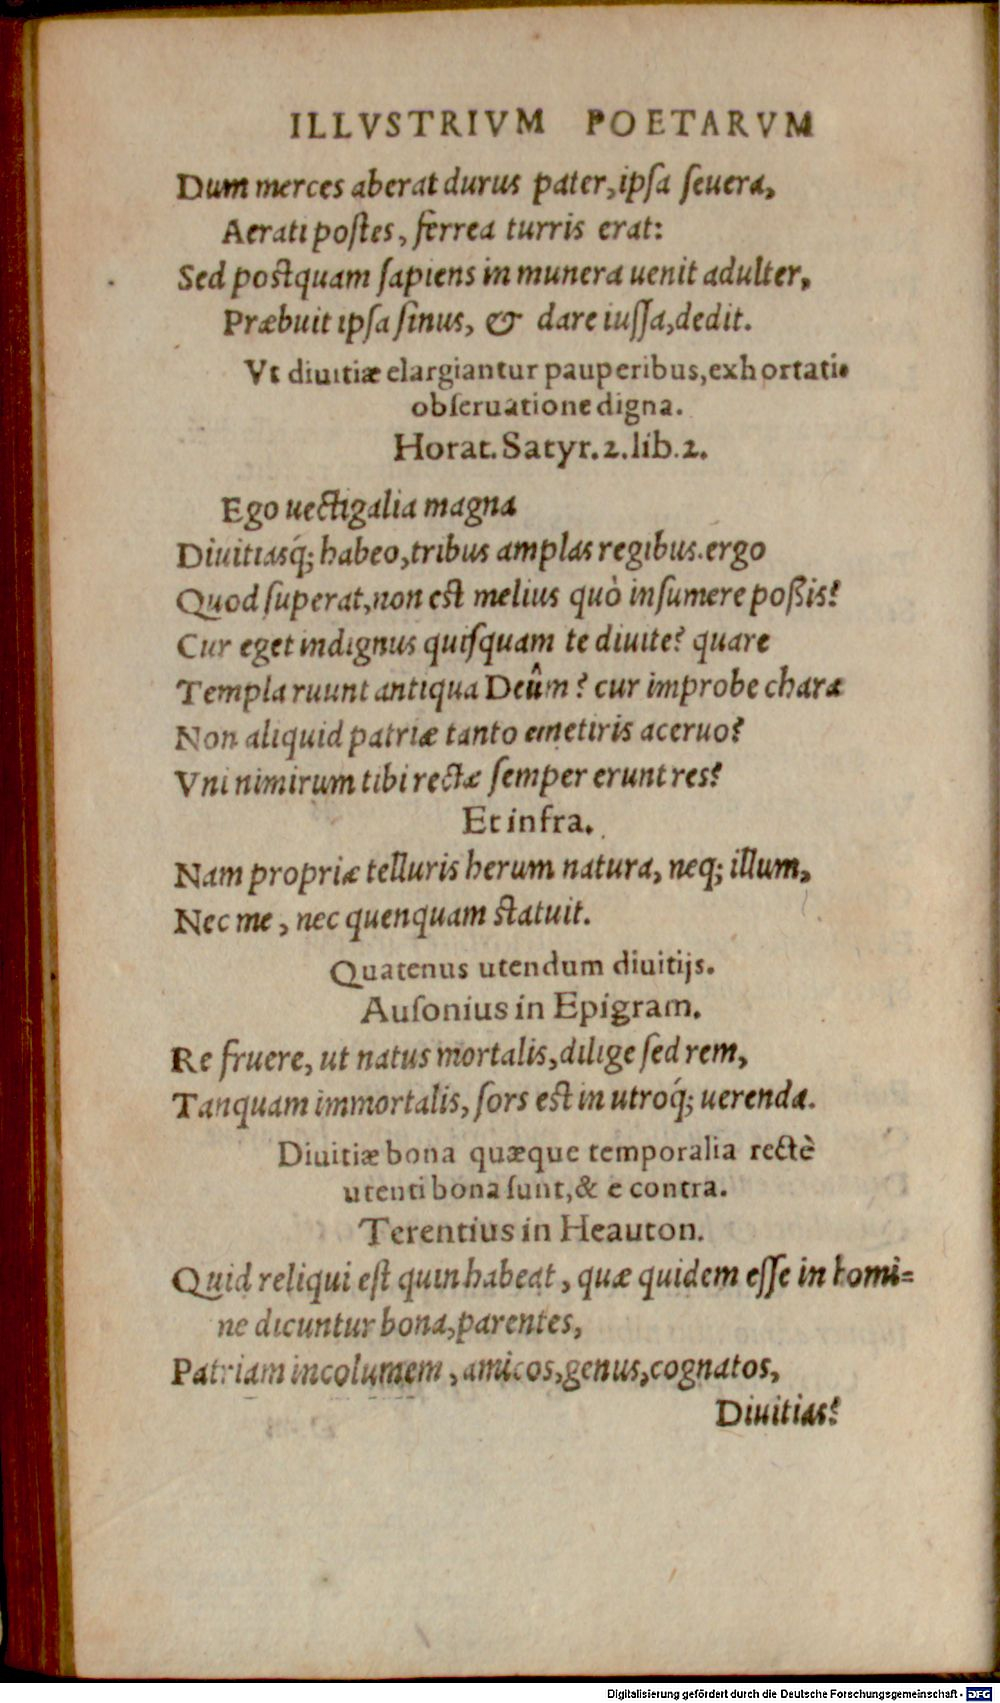 ILLVSTRIVM POETARVM
Dum merces aberat durus pater, ipſa ſeuera,
Aerati poſtes, ferrea turris erat:
Sed postquam ſapiens in munera uenit adulter,
Præbuit ipſa ſinus, & dare iuſſa, dedit.
Vt diuitiæ elargiantur pauperibus, exhortati•
obſeruatione digna.
Horat. Satyr. 2. lib. 2.
Ego uectigalia magna
Diuitiasq́; habeo, tribus amplas regibus. ergo
Quod ſuperat, non est melius quò inſumere poßis?
Cur eget indignus quiſquam te diuite? quare
Templa ruunt antiqua Deûm? cur improbe charæ
Non aliquid patriæ tanto emetiris aceruo?
Vni nimirum tibi rectæ ſemper erunt res?
Et infra.
Nam propriæ telluris herum natura, neq; illum,
Nec me, nec quenquam statuit.
Quatenus utendum diuitijs.
Auſonius in Epigram.
Re fruere, ut natus mortalis, dilige ſed rem,
Tanquam immortalis, ſors est in utroq́; uerenda.
Diuitiæ bona quæque temporalia rectè
utenti bona ſunt, & e contra.
Terentius in Heauton.
Quid reliqui eſt quin habeat, quæ quidem eſſe in homi=
ne dicuntur bona, parentes,
Patriam incolumem, amicos, genus, cognatos,
Diuitias?
Digitalisierung gefördert durch die Deutsche Forschungsgemeinschaft - DFG